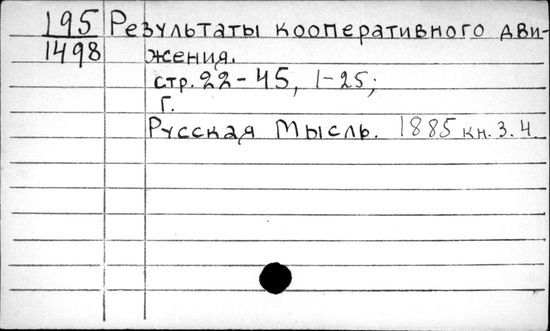 195 Результаты кооперативного дви-
1498 жения.
стр. 22-45, 1-25;
Г.
Русская Мысль. 1885 кн. 3.4.